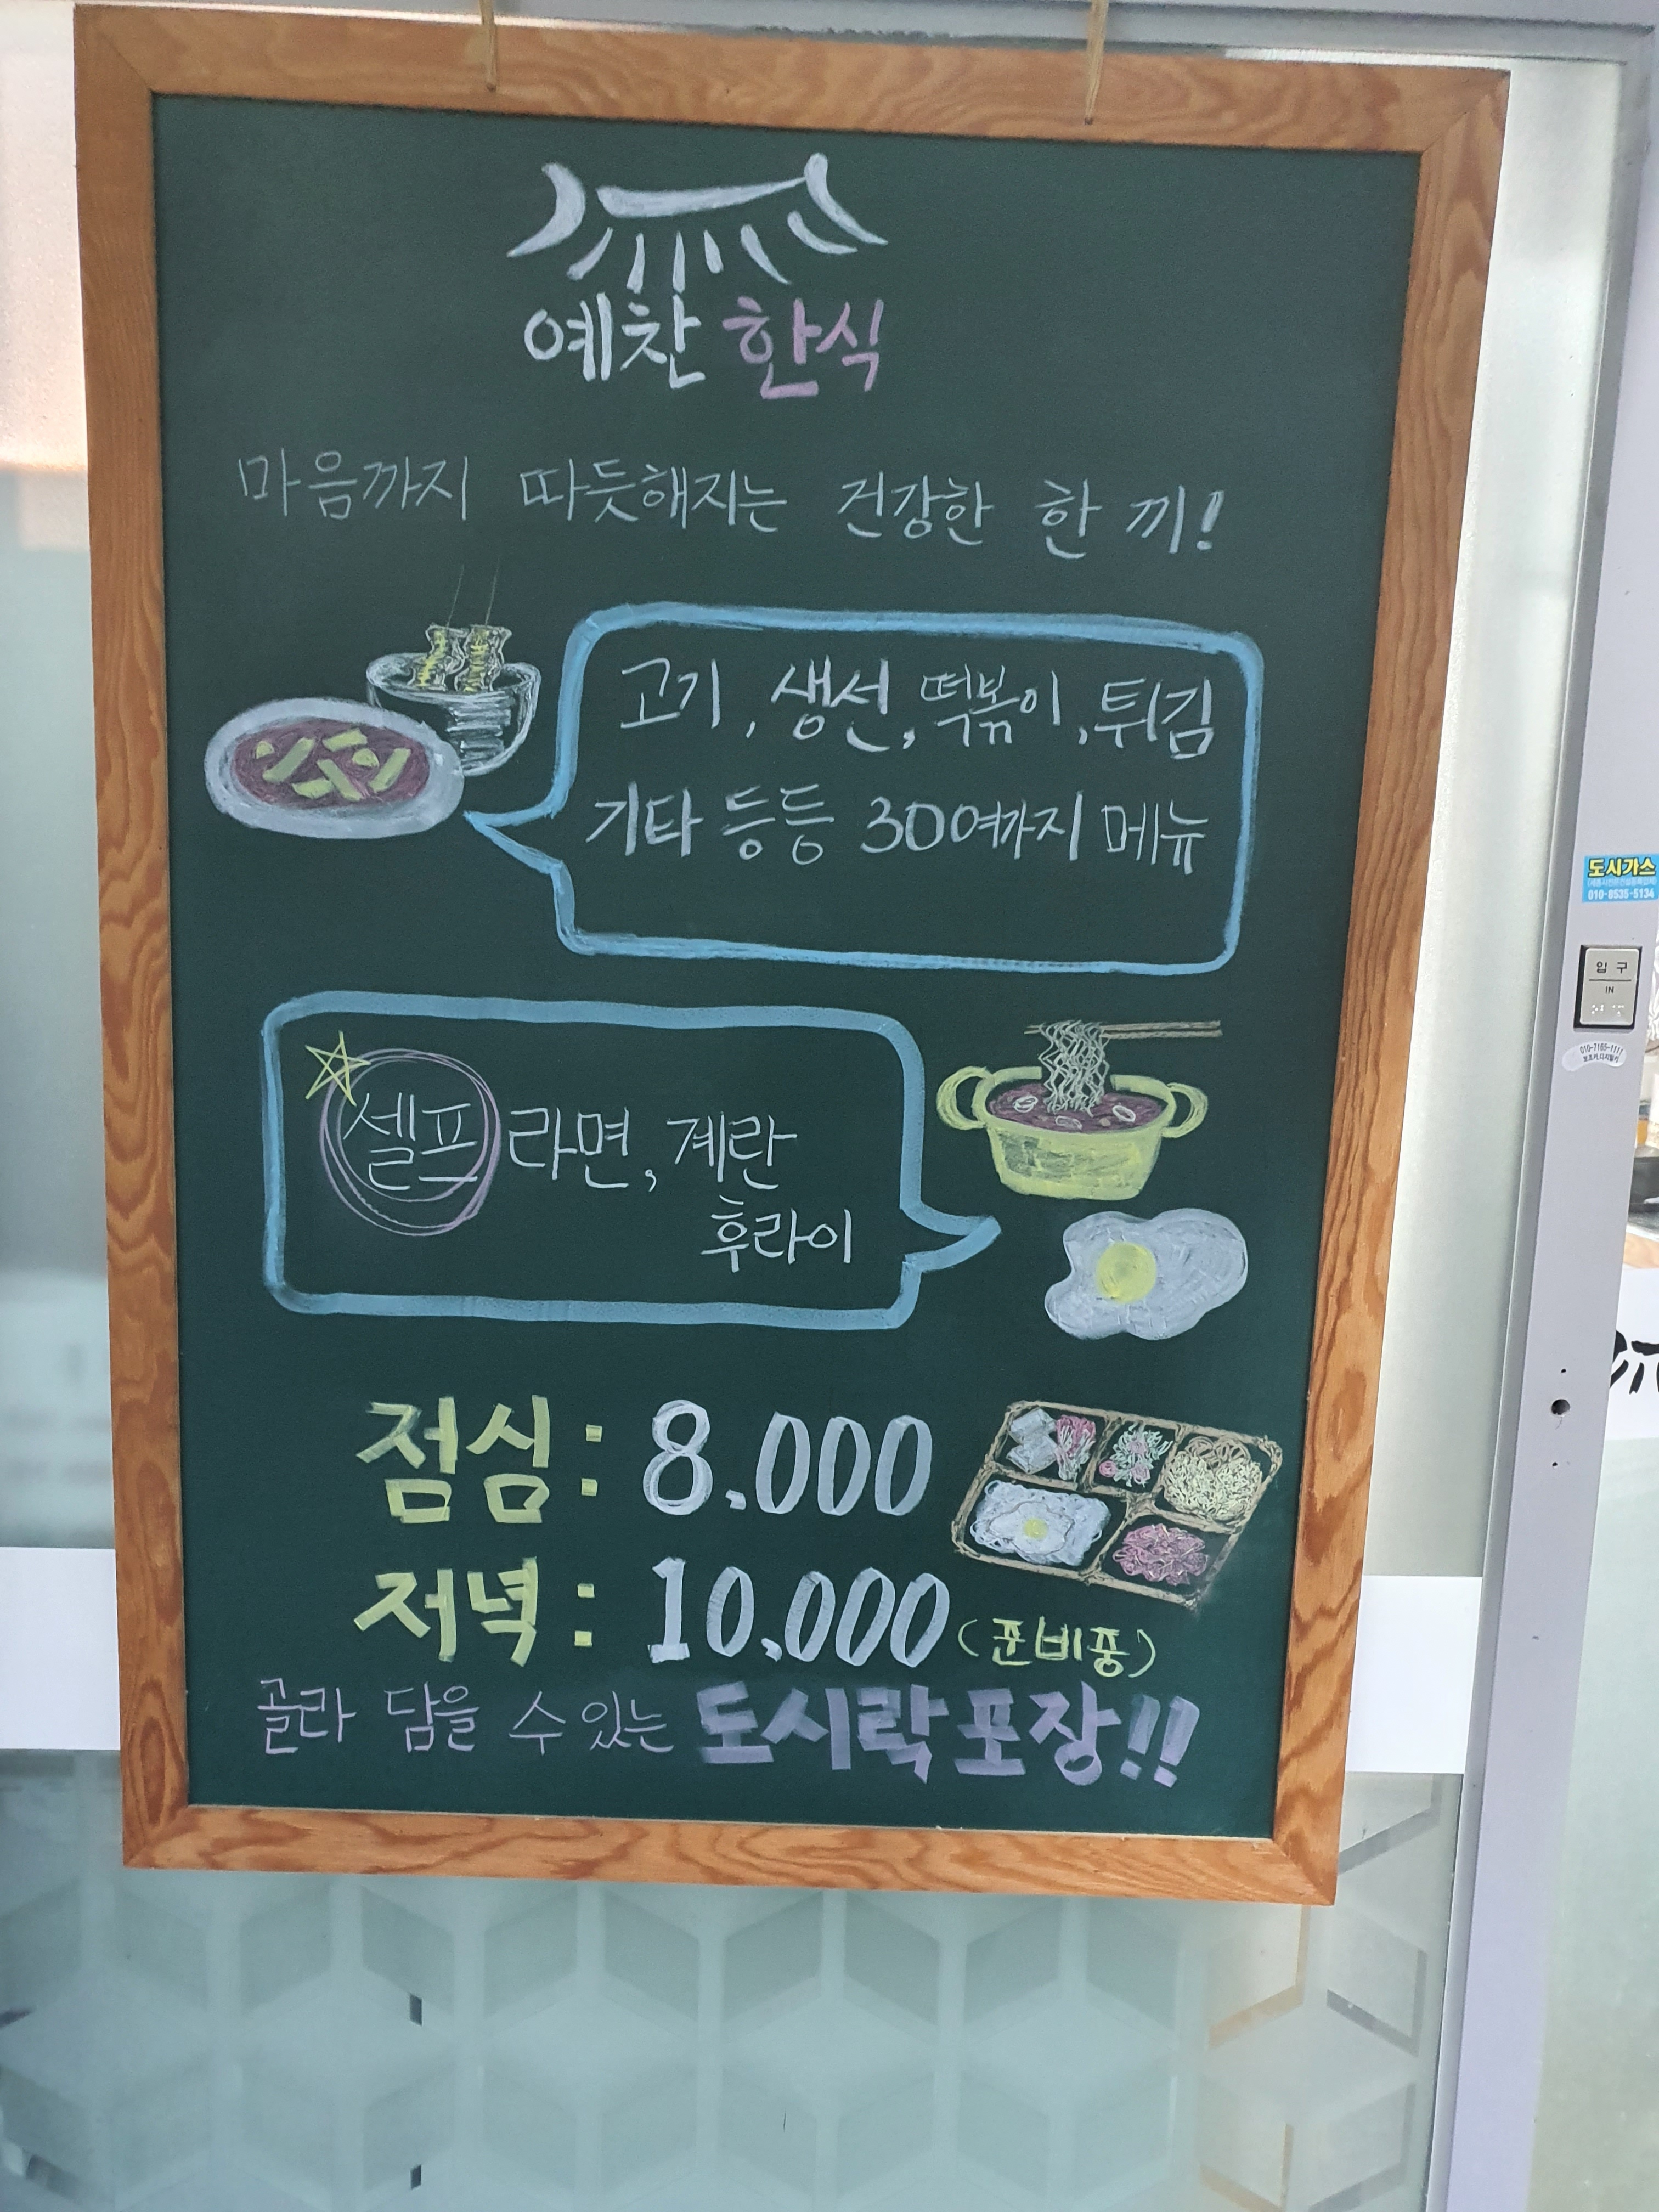 예찬 한식
마음까지 따듯해지는 건강한 한 끼!
고기, 생선, 떡볶이, 튀김
기타 등등 30여가지 메뉴
셀프 라면, 계란
후라이
점심 : 8.000
저녁 : 10.000 (준비중)
골라 담을 수 있는 도시락 포장!!
도시가스
010-8535-5134
입구
IN
010-7165-1111